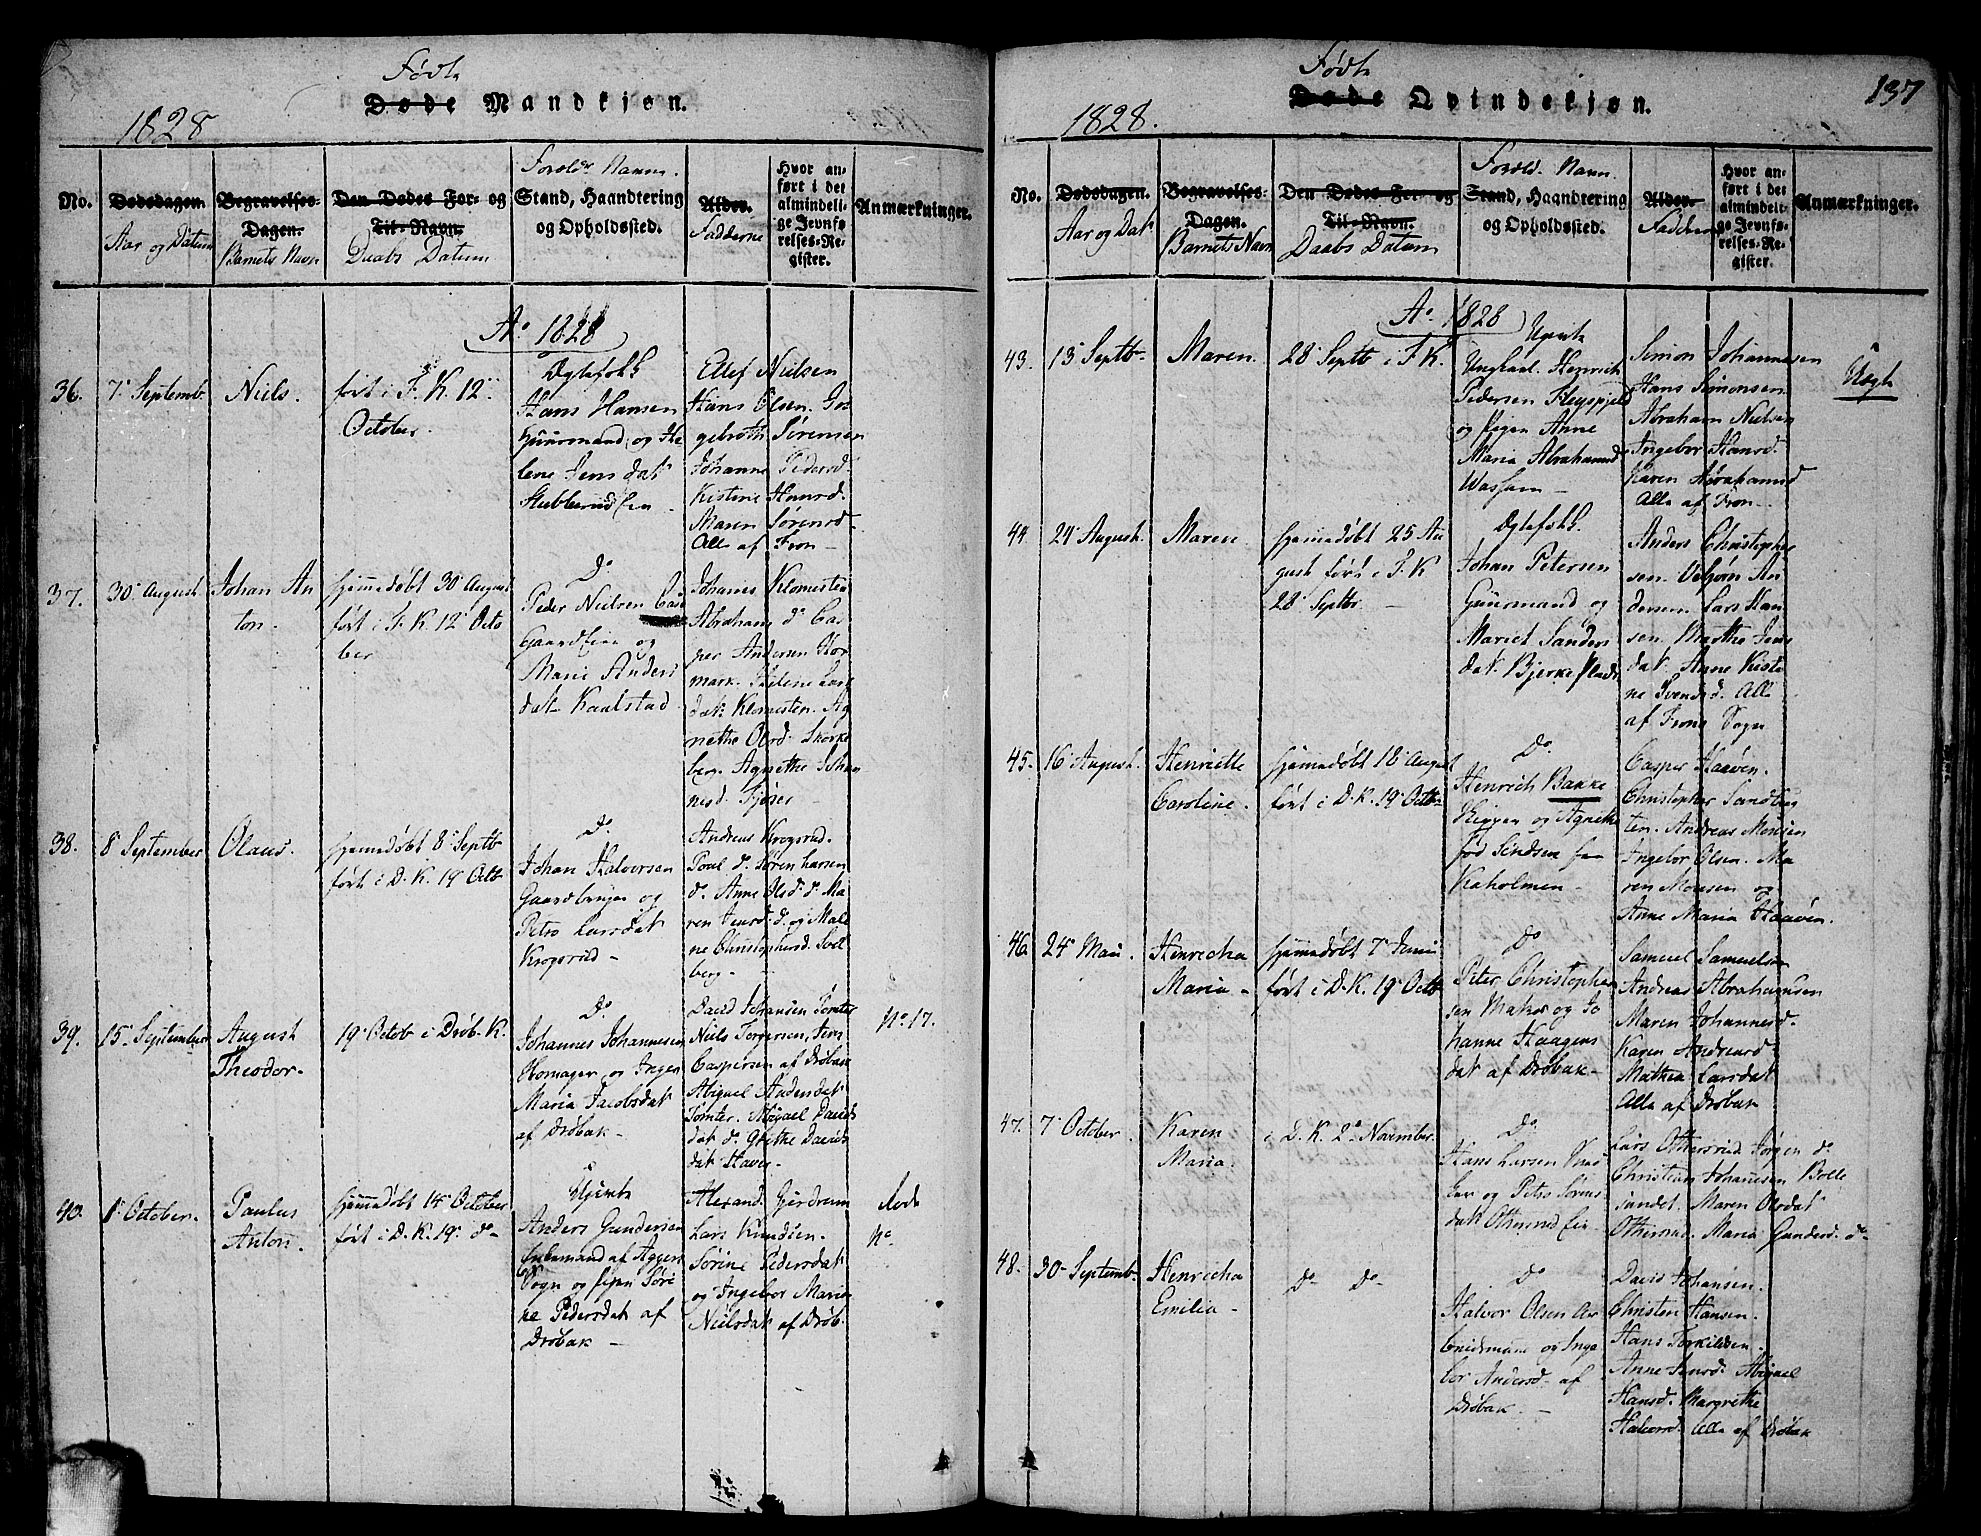 Fødte
Døde Mandkjøn.
1828
No.
Dødsdagen
Aar og Datum
Begravelses-
Dagen.
Barnets Navn
Den Dødes For- og
Til-Navn.
Daabs Datum
Foreld: Navn.
Stand, Haandtering
og Opholdssted.
Alder.
Fadderne
Hvor an-
ført i det
almindeli-
ge Jevnfø-
relses-Re-
gister.
Anmærkninger.
Ao 1828
36.
7de Septemb.
Niels.
ført i F. K. 12te
October.
Ægtefolk
Hans Hansen
Huusmand og He
lene Jens dat
Stubberud Eie
Ellef Nielsen
Hans Olsen.
Sørensen
Johanne Pedersd.
Kistine Hansd.
Maren Sørensd
Alle af Fron
37.
30 August
Johan An
ton.
hjemmedøbt 30 August
ført i F. K. 12 Octo
ber
Do
Peder Nielsen
Gaard Eier og
Marie Anders
dat Kaalstad
Johanis Klomesten
Abrahams do Cas
per Andersen Hor
mark. Helene Lars
dat: Klomesten. Ag
nethe Olsd. Skorke
berg. Agnethe Johan
nesd. Fjøser
38.
8 September
Olaus.
hjemmedøbt 8 Septb
ført i D. K. 19 Octb
Do
Johan Halvorsen
Gaardbruger og
Petro Larsdat
Krogsrud
Andreas Krogsrud.
Poul do Søren Larsen
do. Anne Olsd. do Ma
ren Jensd. do og Mall
ne Christophersd. Svel
berg
39.
15 September
August
Theodor.
19 Octob i Drøb. K.
Do
Johannes Johannesen
Skomager og Inger
Maria Jacobsdat
af Drøbak
David Johansen Tomter
Niels Torgersen, Jens
Caspersen af Drøbak
Abiguel Andersdat
Tomter. Abigael Davids
dat do. Grethe Davids
dat Haver
No. 17.
40.
1 October.
Paulus
Anton.
hjemmedøbt 14 October
ført i D. K. 19 do
Uægte
Anders Gundersen
Enkemand af Agger
Sogn og Pigen Søri
ne Pedersdat af
Drøbak
Alexand. Gjerdrum
Lars Knudsen.
Sørine Pedersdat
og Ingebor Marie
Nielsdat af Drøb.
Død
No
Fødte
Døde Qvindekjøn.
137
1828.
No.
Dødsdagen.
Aar og Dat
Begravelses-
Dagen.
Barnets Navn
Den Dødes For- og
Til-Navn.
Daabs Datum
Foreld. Navn.
Stand, Haandtering
og Opholdssted.
Alder.
Fadderne
Hvor an-
ført i det
almindeli-
ge Jevnfø-
relses-Re-
gister.
Anmærkninger.
Ao. 1828
43.
13 Septb
Maren.
28 Septb i F. K.
Uægte
Ungkarl Henrich
Pedersen
og Pigen Anne
Maria Abrahamsd
Simon Johannesen
Hans Simonsen
Abraham Nielsen
Ingebor Hansd.
Karen Abrahamsd
Alle af Fron
Uægt
44
24 August.
Maren
hjemmedøbt 25 Au
gust ført i F. K
28 Septb.
Ægtefolk.
Johan Petersen
Huusmand og
Mariet Sanders
dat Bjerke Plads
Anders Christopher
sen. Vebjørn An
dersen. Lars Han
sen. Marthe Jens
dat. Anne Kisti
ne Svensd. Alle
af Frons Sogn
45.
16 August.
Henriette
Caroline.
hjemmedøbt 18 August
ført i D. K. 19 Octb.
Do
Henrich Bakke
Skipper og Agnethe
fød Sindsen fra
Kaholmen
Casper Haaven.
Christopher Sandbus
ten. Andreas Monsen
Ingebor Olsen. Ma
ren Monsen og
Anne Maria Haaven.
46
24 Mai
Henrecha
Maria
hjemmedøbt 7 Juni
ført i D. K. 19 Octb
Do
Peter Christopher
sen Matros og Jo
hanne Haagens
dat af Drøbak
Samuel Samuelsen
Andreas Abrahamsen
Maren Johannesd.
Karen Andreasd
Mathea Larsdat
Alle af Drøbak
47.
7 October
Karen
Maria.
i D. K. 2 November.
Do
Hans Larsen
og Petro Sørens
dat Ottersrud Eie
Lars Ottersrud Jørgen do
Christian Johansen Bolle
sundet. Maren Olsdat
Ottersrud. Maria Gundersd. do
48.
30 Septemb
Henrecha
Emilia
Do Do
Do
Halvor Olsen Ar
beidsmand og Inge
bor Andersd. af
Drøbak.
David Johansen.
Christen Hansen.
Hans Torkildsen.
Anne Jensd. Abiguel
Hansd. Margrethe
Halvorsd. Alle af Drøbak